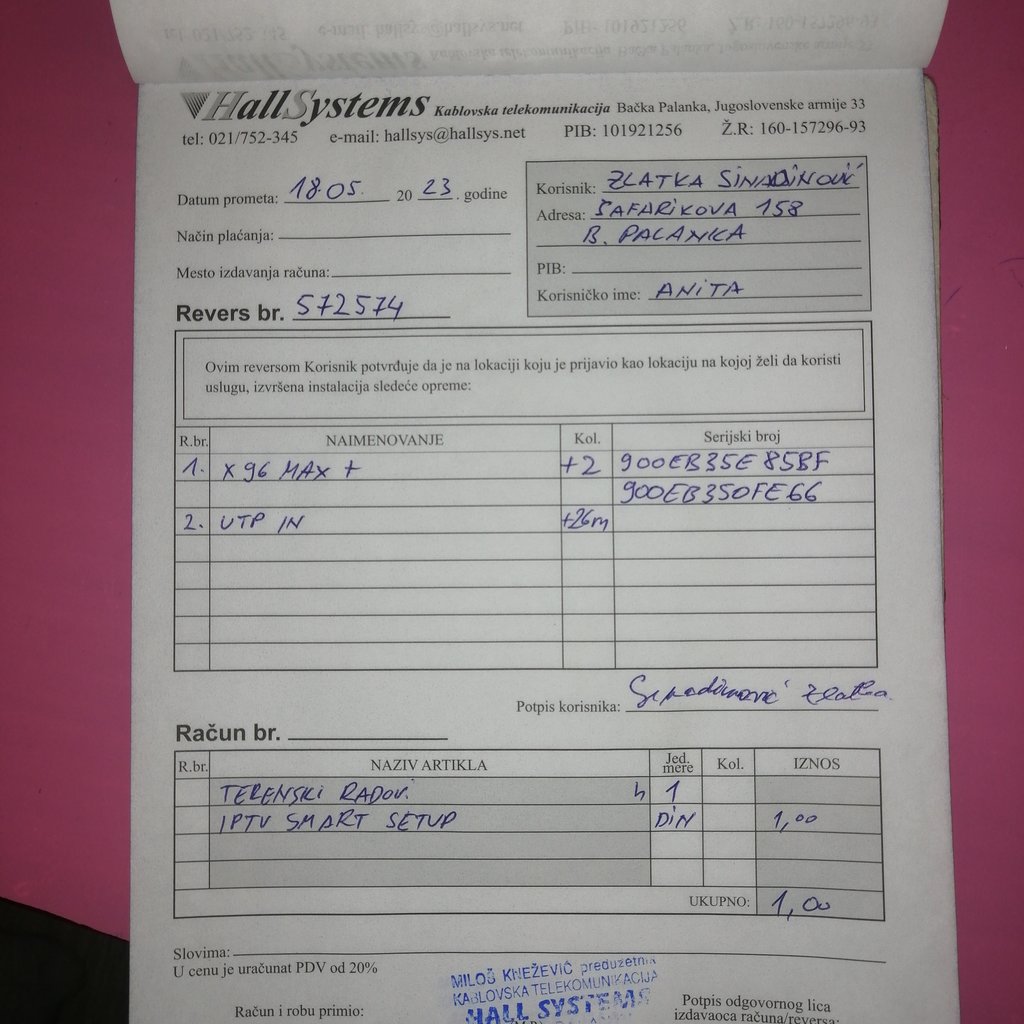 HallSystems Kablovska telekomunikacija Bačka Palanka, Jugoslovenske armije 33
tel: 021/752-345 e-mail: hallsys@hallsys.net PIB: 101921256 Ž.R: 160-157296-93
Datum prometa: 18 05. 20 23. godine
Način plaćanja:
Mesto izdavanja računa:
Revers br. 572574
Korisnik: ZLATKA SINADINOVIĆ
Adresa: ŠAFARIKOVA 158
B. PALANKA
PIB:
Korisničko ime: ANITA
Ovim reversom Korisnik potvrđuje da je na lokaciji koju je prijavio kao lokaciju na kojoj želi da koristi
uslugu, izvršena instalacija sledeće opreme:
R.br. NAIMENOVANJE Kol. Serijski broj
1. X96 MAX + +2 900EB35E85BF
900EB350FE66
2. UTP IN +26m
Potpis korisnika: Sinadinović Zlatka
Račun br.
R.br. NAZIV ARTIKLA Jed. mere Kol. IZNOS
TERENSKI RADOVI h 1
IPTV SMART SETUP DIN 1,00
UKUPNO: 1,00
Slovima:
U cenu je uračunat PDV od 20%
MILOŠ KNEŽEVIĆ preduzetnik
KABLOVSKA TELEKOMUNIKACIJA
HALL SYSTEMS
Račun i robu primio:
Potpis odgovornog lica
izdavaoca računa/reversa: